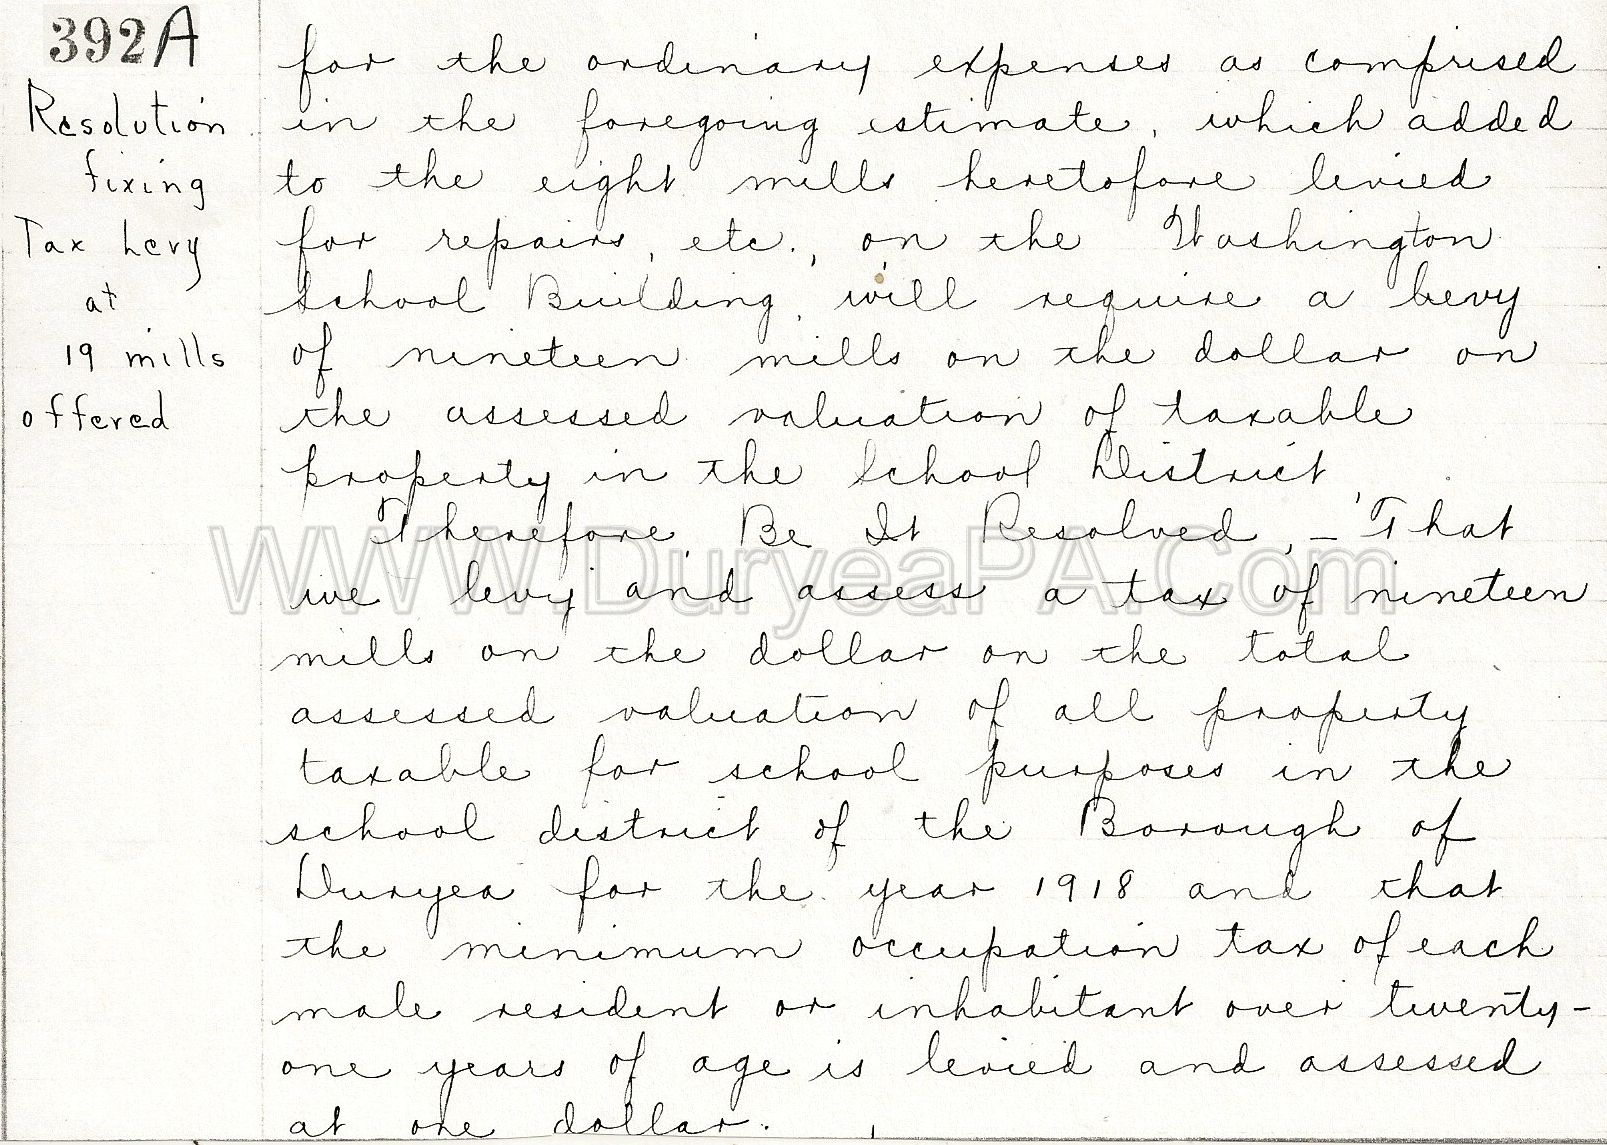 392A
Resolution
fixing
Tax Levy
at
19 mills
offered
for the ordinary expenses as comprised
in the foregoing estimate, which added
to the eight mills heretofore levied
for repairs, etc., on the Washington
School Building, will require a levy
of nineteen mills on the dollar on
the assessed valuation of taxable
property in the School District,
Therefore, Be It Resolved, - That
we levy and assess a tax of nineteen
mills on the dollar on the total
assessed valuation of all property
taxable for school purposes in the
school district of the Borough of
Duryea for the year 1918 and that
the minimum occupation tax of each
male resident or inhabitant over twenty-
one years of age is levied and assessed
at one dollar.
WWW.DuryeaPA.Com